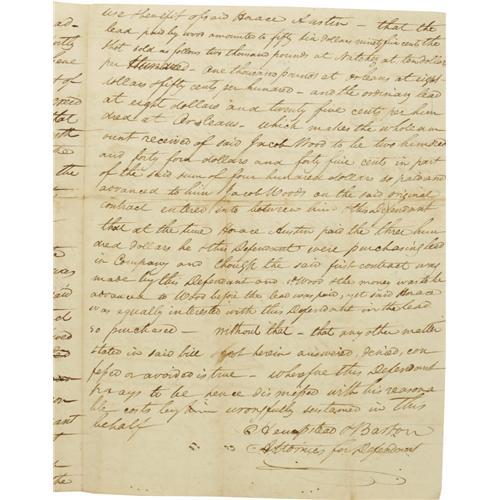 use & benefit of said Horace Austin - that the
lead paid by wood amounted to fifty six dollars ninety five cents the
shot sold as follows two thousand pounds at Natchez at ten dollars
per Hundred - one thousand pounds at Orleans at eight
dollars & fifty cents per hundred - and the ordinary lead
at eight dollars and twenty five cents per hun
dred at Orleans - which makes the whole am
ount received of said Jacob Wood to be two hundred
and forty four dollars and forty five cents in part
of the said sum of four hundred dollars so paid and
advanced to him Jacob Woods on the said original
contract entered into between him & this defendant
that at the time Horace Austin paid the three hun
dred dollars he & this Defendant were purchasing lead
in Company and though the said first contract was
made by this Defendant and & Wood & the money was to be
advanced to Wood before the lead was paid, yet said Horace
was equally interested with this Defendant in the lead
so purchased - without that - that any other matter
stated in said bill not herein answered, denied, con
fessed or avoided is true - wherefore this Defendant
prays to be hence dismissed with his reasona
ble costs by him wrongfully sustained in this
behalf
Hempstead & Barton
Attornies for Defendant